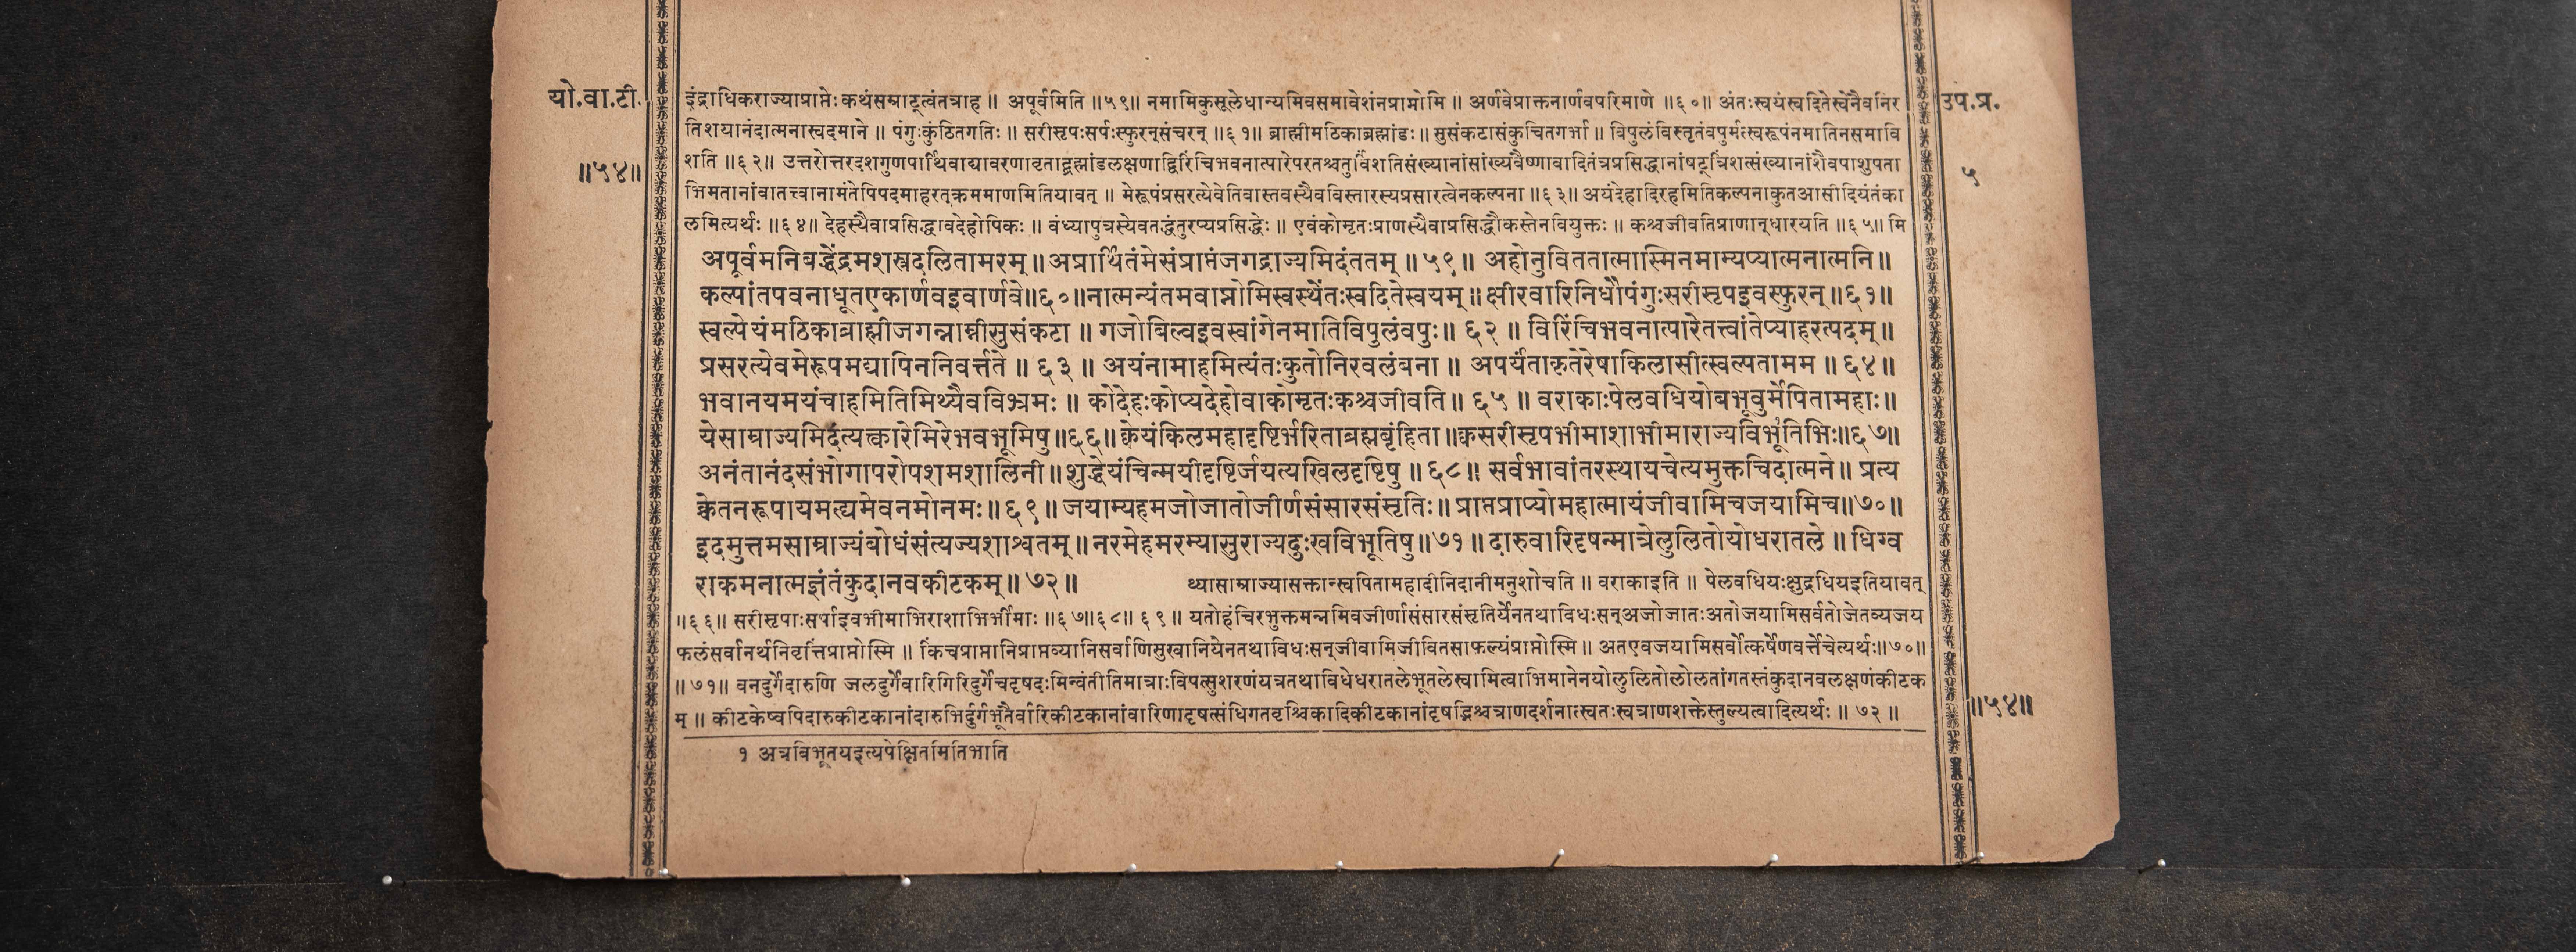 यो.वा.टी.
॥५४॥
इंद्राधिकराज्याप्राप्तेः कथंसम्राट्त्वंतत्राह ॥ अपूर्वमिति ॥५९॥ नमामिकुसूलेधान्यमिवसमावेशंनप्राप्नोमि ॥ अर्णवेप्राक्तनार्णवपरिमाणे ॥६०॥ अंतःस्वयंस्वदितेस्वेनैवनिर
तिशयानंदात्मनास्वदमाने ॥ पंगुःकुंठितगतिः ॥ सरीसृपःसर्पःस्फुरन्संचरन् ॥६१॥ ब्राह्मीमठिकाब्रह्मांडः ॥ सुसंकटासंकुचितगर्भा ॥ विपुलंविस्तृतंवपुर्मत्स्वरूपंनमातिनसमावि
शति ॥६२॥ उत्तरोत्तरदशगुणपार्थिवाद्यावरणावृताद्ब्रह्मांडलक्षणाद्विरिंचिभवनात्पारेपरतश्चतुर्विंशतिसंख्यानांसांख्यवैष्णावादितंत्रप्रसिद्धानांषट्त्रिंशत्संख्यानांशैवपाशुपता
भिमतानांवातत्त्वानामंतेपिपदमाहरत्क्रममाणमितियावत् ॥ मेरूपंप्रसरत्येवेतिवास्तवस्यैवविस्तारस्यप्रसारत्वेनकल्पना ॥६३॥ अयंदेहादिरहमितिकल्पनाकुतआसीदियंतंका
लमित्यर्थः ॥६४॥ देहस्यैवाप्रसिद्धावदेहोपिकः ॥ वंध्यापुत्रस्येवतद्धंतुरप्यप्रसिद्धेः ॥ एवंकोमृतःप्राणस्यैवाप्रसिद्धौकस्तेनवियुक्तः ॥ कश्चजीवतिप्राणान्धारयति ॥६५॥ मि
अपूर्वमनिबद्धेंद्रमशस्त्रदलितामरम् ॥ अप्रार्थितंमेसंप्राप्तंजगद्राज्यमिदंततम् ॥ ५९ ॥ अहोनुविततात्मास्मिनमाम्यप्यात्मनात्मनि ॥
कल्पांतपवनाधूतएकार्णवइवार्णवे॥६०॥नात्मन्यंतमवाप्नोमिस्वस्थेंतःस्वदितेस्वयम् ॥ क्षीरवारिनिधौपंगुःसरीसृपइवस्फुरन् ॥६१॥
स्वल्पेयंमठिकाब्राह्मीजगन्नाम्नीसुसंकटा ॥ गजोबिल्वइवस्वांगेनमातिविपुलंवपुः ॥ ६२ ॥ विरिंचिभवनात्पारेतत्त्वांतेप्याहरत्पदम् ॥
प्रसरत्येवमेरूपमद्यापिननिवर्त्तते ॥ ६३ ॥ अयंनामाहमित्यंतःकुतोनिरवलंबना ॥ अपर्यंताकृतेरेषाकिलासीत्स्वल्पतामम ॥ ६४॥
भवानयमयंचाहमितिमिथ्यैवविभ्रमः ॥ कोदेहःकोप्यदेहोवाकोमृतःकश्चजीवति ॥ ६५ ॥ वराकाःपेलवधियोबभूवुर्मेपितामहाः॥
येसाम्राज्यमिदंत्यक्त्वारेमिरेभवभूमिषु॥६६॥ क्वेयंकिलमहादृष्टिर्भरिताब्रह्मबृंहिता ॥क्वसरीसृपभीमाशाभीमाराज्यविभूतिभिः॥६७॥
अनंतानंदसंभोगापरोपशमशालिनी ॥ शुद्धेयंचिन्मयीदृष्टिर्जयत्यखिलदृष्टिषु ॥ ६८ ॥ सर्वभावांतरस्थायचेत्यमुक्तचिदात्मने ॥ प्रत्य
क्चेतनरूपायमत्द्यमेवनमोनमः॥ ६९॥ जयाम्यहमजोजातोजीर्णसंसारसंसृतिः॥ प्राप्तप्राप्योमहात्मायंजीवामिचजयामिच॥७०॥
इदमुत्तमसाम्राज्यंबोधंसंत्यज्यशाश्वतम् ॥ नरमेहमरम्यासुराज्यदुःखविभूतिषु॥७१॥ दारुवारिदृषन्मात्रेलुलितोयोधरातले ॥ धिग्व
राकमनात्मज्ञंतंकुदानवकीटकम् ॥ ७२ ॥ थ्यासाम्राज्यासक्तान्स्वपितामहादीनिदानीमनुशोचति ॥ वराकाइति ॥ पेलवधियःक्षुद्रधियइतियावत्
॥६६॥ सरीसृपाःसर्पाइवभीमाभिराशाभिर्भीमाः ॥६७॥६८॥ ६९ ॥ यतोहंचिरभुक्तमन्नमिवजीर्णासंसारसंसृतिर्येनतथाविधःसन्अजोजातःअतोजयामिसर्वतोजेतव्यजय
फलंसर्वानर्थनिवृत्तिंप्राप्तोस्मि ॥ किंचप्राप्तानिप्राप्तव्यानिसर्वाणिसुखानियेनतथाविधःसन्जीवामिजीवितसाफल्यंप्राप्तोस्मि ॥ अतएवजयामिसर्वोत्कर्षेणवर्त्तेचेत्यर्थः॥७०॥
॥७१॥ वनदुर्गेदारुणि जलदुर्गेवारिगिरिदुर्गेचदृषदःमिन्वंतीतिमात्राःविपत्सुशरणंयत्रतथाविधेधरातलेभूतलेस्वामित्वाभिमानेनयोलुलितोलोलतांगतस्तंकुदानवलक्षणंकीटक
म् ॥ कीटकेष्वपिदारुकीटकानांदारुभिर्दुर्गभूतैर्वारिकीटकानांवारिणादृषत्संधिगतवृश्चिकादिकीटकानांदृषद्भिश्चत्राणदर्शनात्स्वतःस्वत्राणशक्तेस्तुल्यत्वादित्यर्थः ॥ ७२ ॥
१ अत्रविभूतयइत्यपेक्षितमितिभाति
उप.प्र.
५
॥५४॥